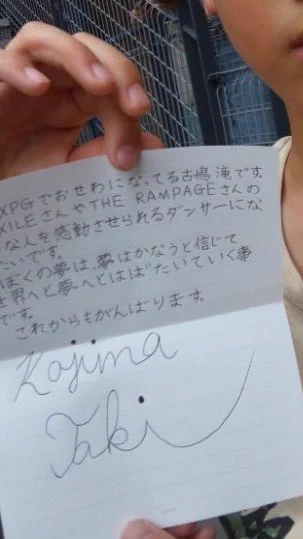 XPGでおせわになってる古嶋 滝です。
XILEさんやTHE RAMPAGEさんの
な人を感動させられるダンサーにな
たいです。
ぼくの夢は、夢はかなうと信じて
世界へと夢へとはばたいていく事
です。
これからもがんばります。
Kojima
Taki